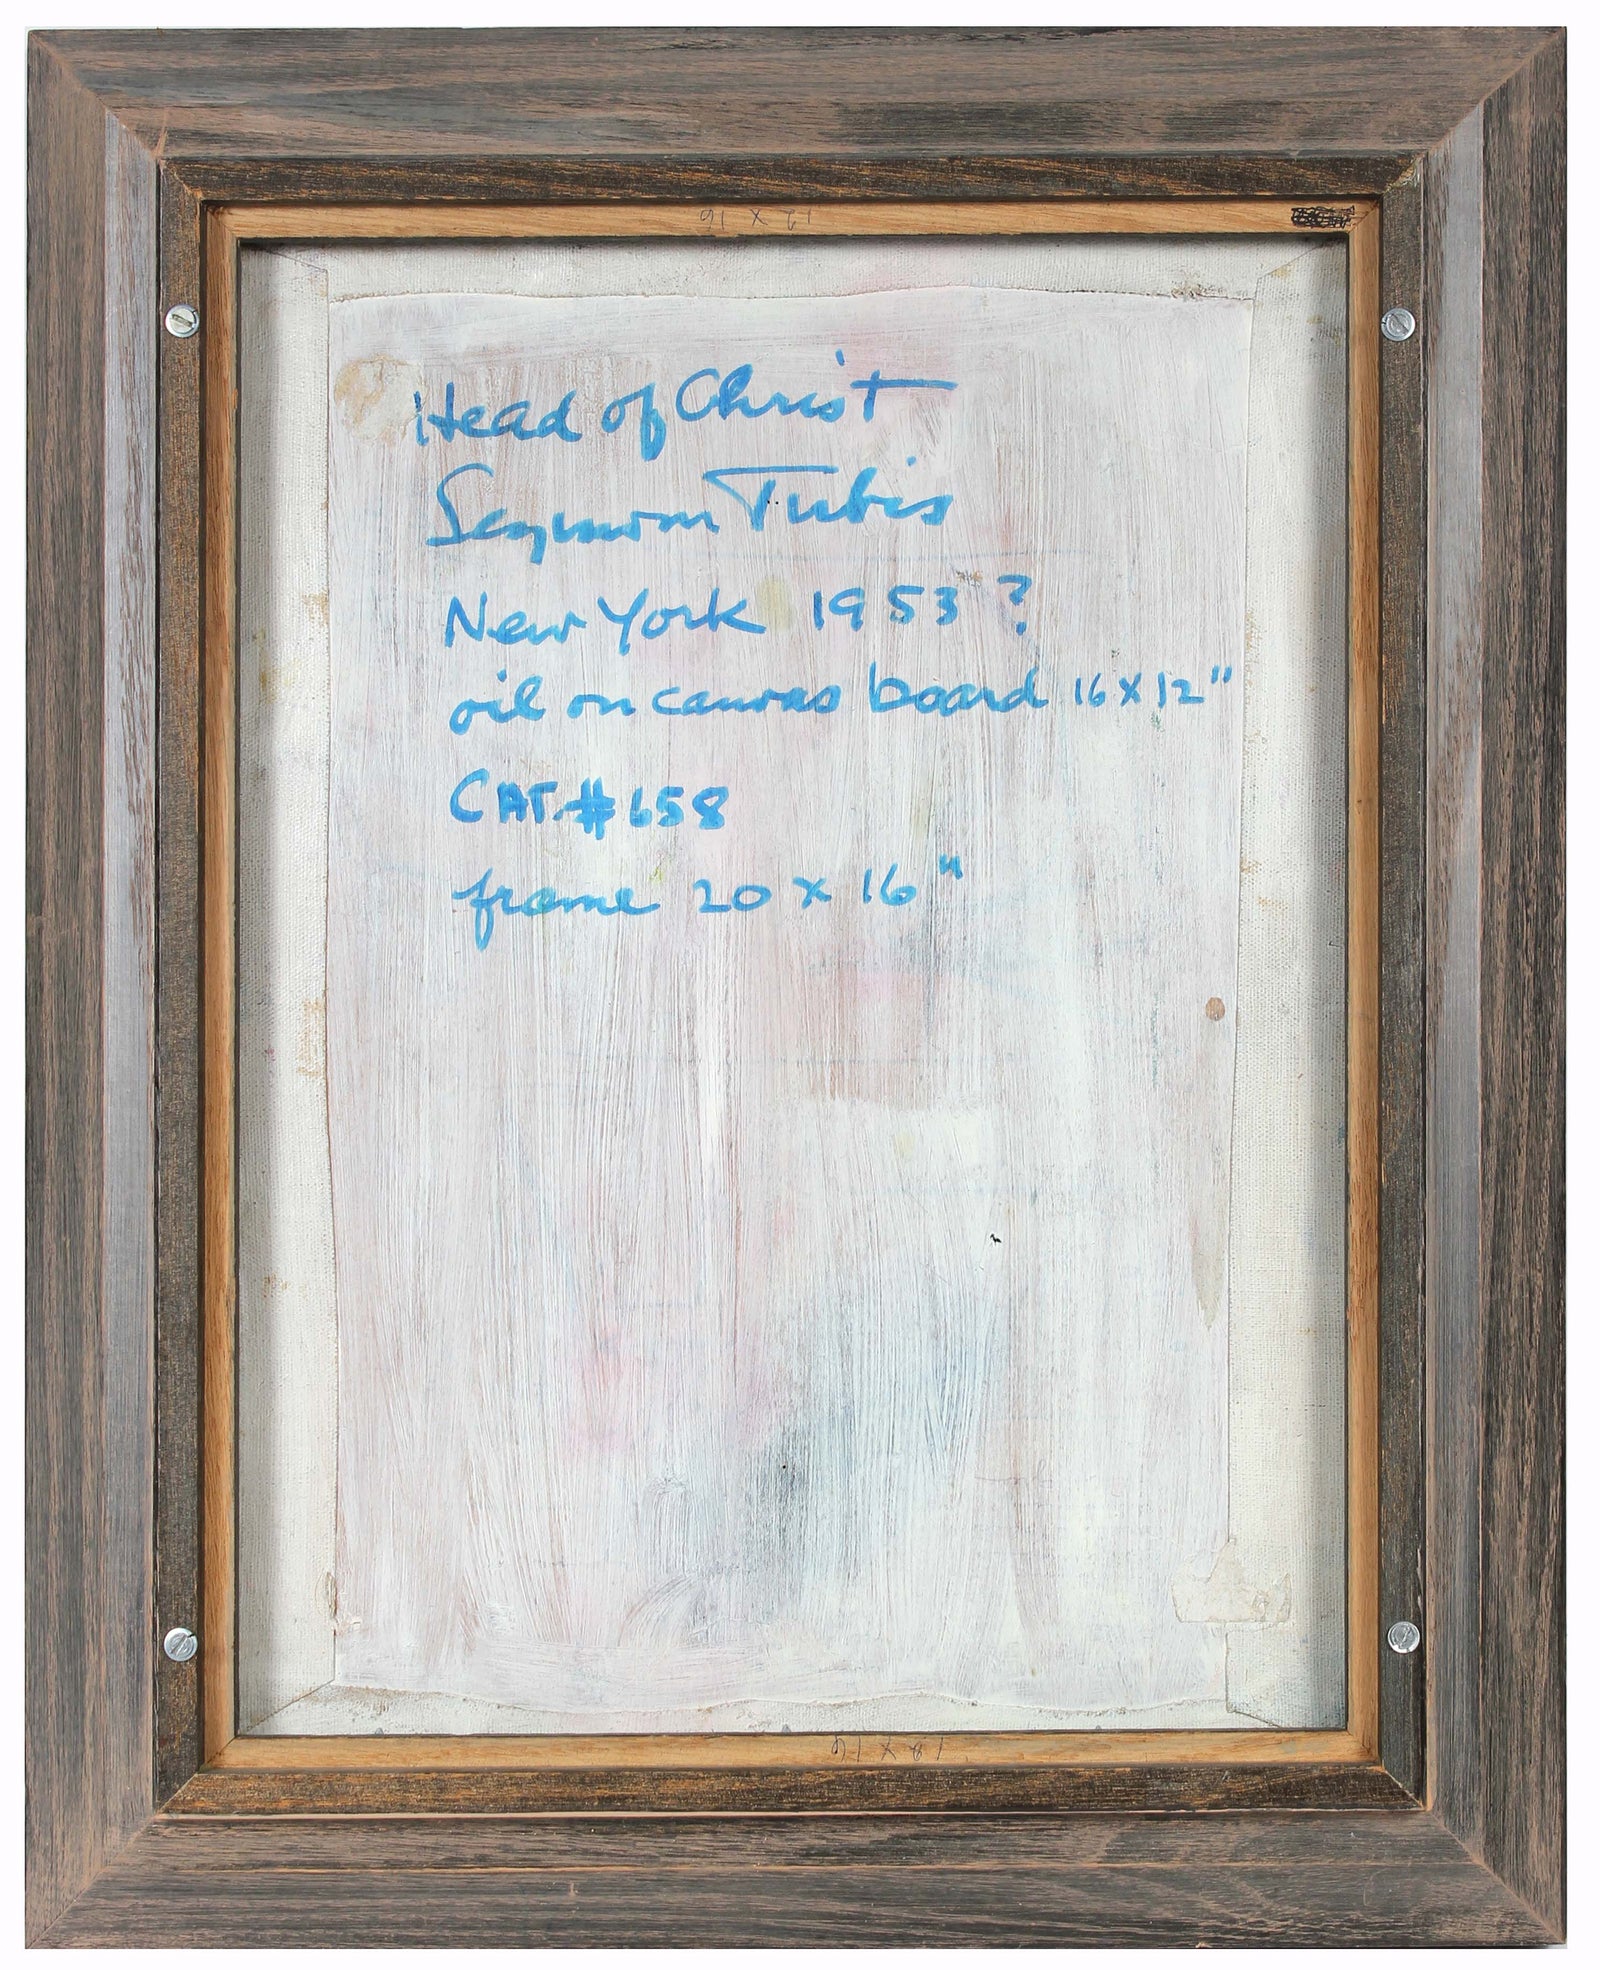 12 x 16
Head of Christ
Seymour Tubis
New York 1953 ?
oil on canvas board 16 x 12"
CAT. #658
frame 20 x 16"
12 x 16